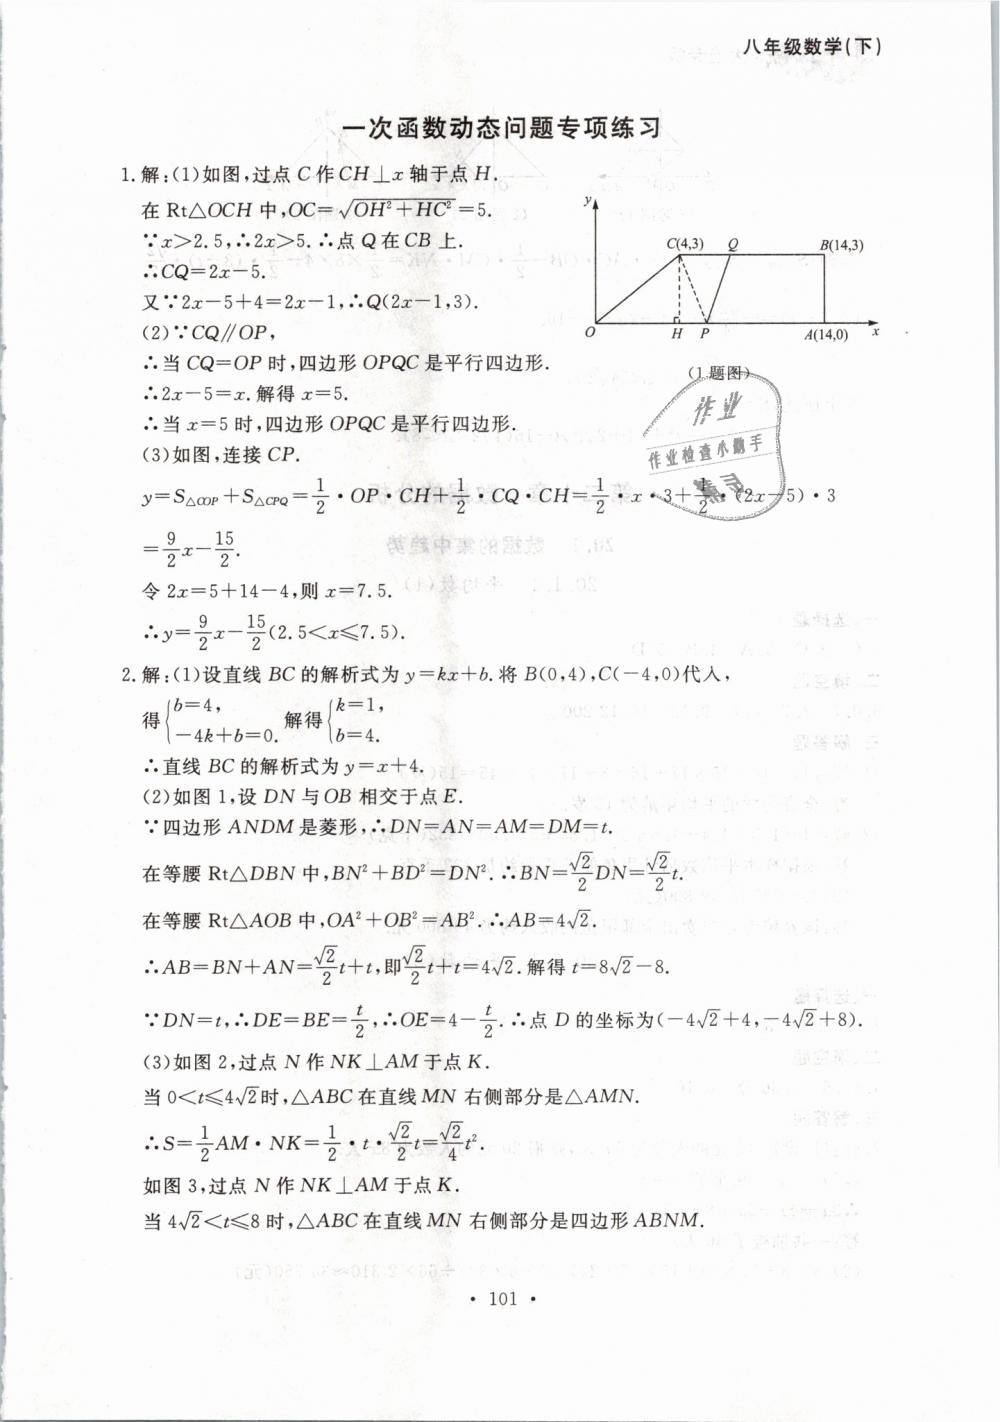 八年级数学(下)
一次函数动态问题专项练习
1.解:(1)如图,过点C作CH⊥x轴于点H.
在Rt△OCH中,OC=√(OH²+HC²)=5.
∵x>2.5,∴2x>5.∴点Q在CB上.
∴CQ=2x-5.
又∵2x-5+4=2x-1,∴Q(2x-1,3).
(2)∵CQ∥OP,
∴当CQ=OP时,四边形OPQC是平行四边形.
∴2x-5=x.解得x=5.
∴当x=5时,四边形OPQC是平行四边形.
(3)如图,连接CP.
y=S△COP+S△CPQ=1/2·OP·CH+1/2·CQ·CH=1/2·x·3+1/2·(2x-5)·3
=9/2x-15/2.
令2x=5+14-4,则x=7.5.
∴y=9/2x-15/2(2.5<x≤7.5).
y
C(4,3) Q B(14,3)
O H P A(14,0) x
(1题图)
作业
作业检查小助手
2.解:(1)设直线BC的解析式为y=kx+b.将B(0,4),C(-4,0)代入,
得{b=4, -4k+b=0. 解得{k=1, b=4.
∴直线BC的解析式为y=x+4.
(2)如图1,设DN与OB相交于点E.
∵四边形ANDM是菱形,∴DN=AN=AM=DM=t.
在等腰Rt△DBN中,BN²+BD²=DN².∴BN=√2/2DN=√2/2t.
在等腰Rt△AOB中,OA²+OB²=AB².∴AB=4√2.
∴AB=BN+AN=√2/2t+t,即√2/2t+t=4√2.解得t=8√2-8.
∵DN=t,∴DE=BE=t/2,∴OE=4-t/2.∴点D的坐标为(-4√2+4,-4√2+8).
(3)如图2,过点N作NK⊥AM于点K.
当0<t≤4√2时,△ABC在直线MN右侧部分是△AMN.
∴S=1/2AM·NK=1/2·t·√2/2t=√2/4t².
如图3,过点N作NK⊥AM于点K.
当4√2<t≤8时,△ABC在直线MN右侧部分是四边形ABNM.
·101·